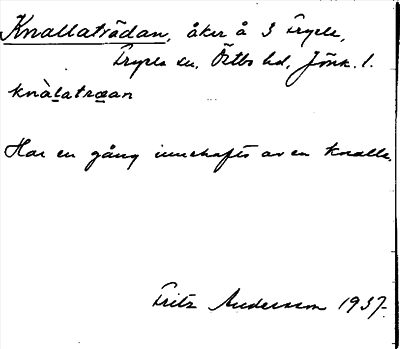 Knallaträdan, åker å 3 Fryele,
Fryele sn. Östbo hd, Jönk. l.
knàlatræan
Har en gång innehafts av en knalle.
Fritz Andersson 1937.